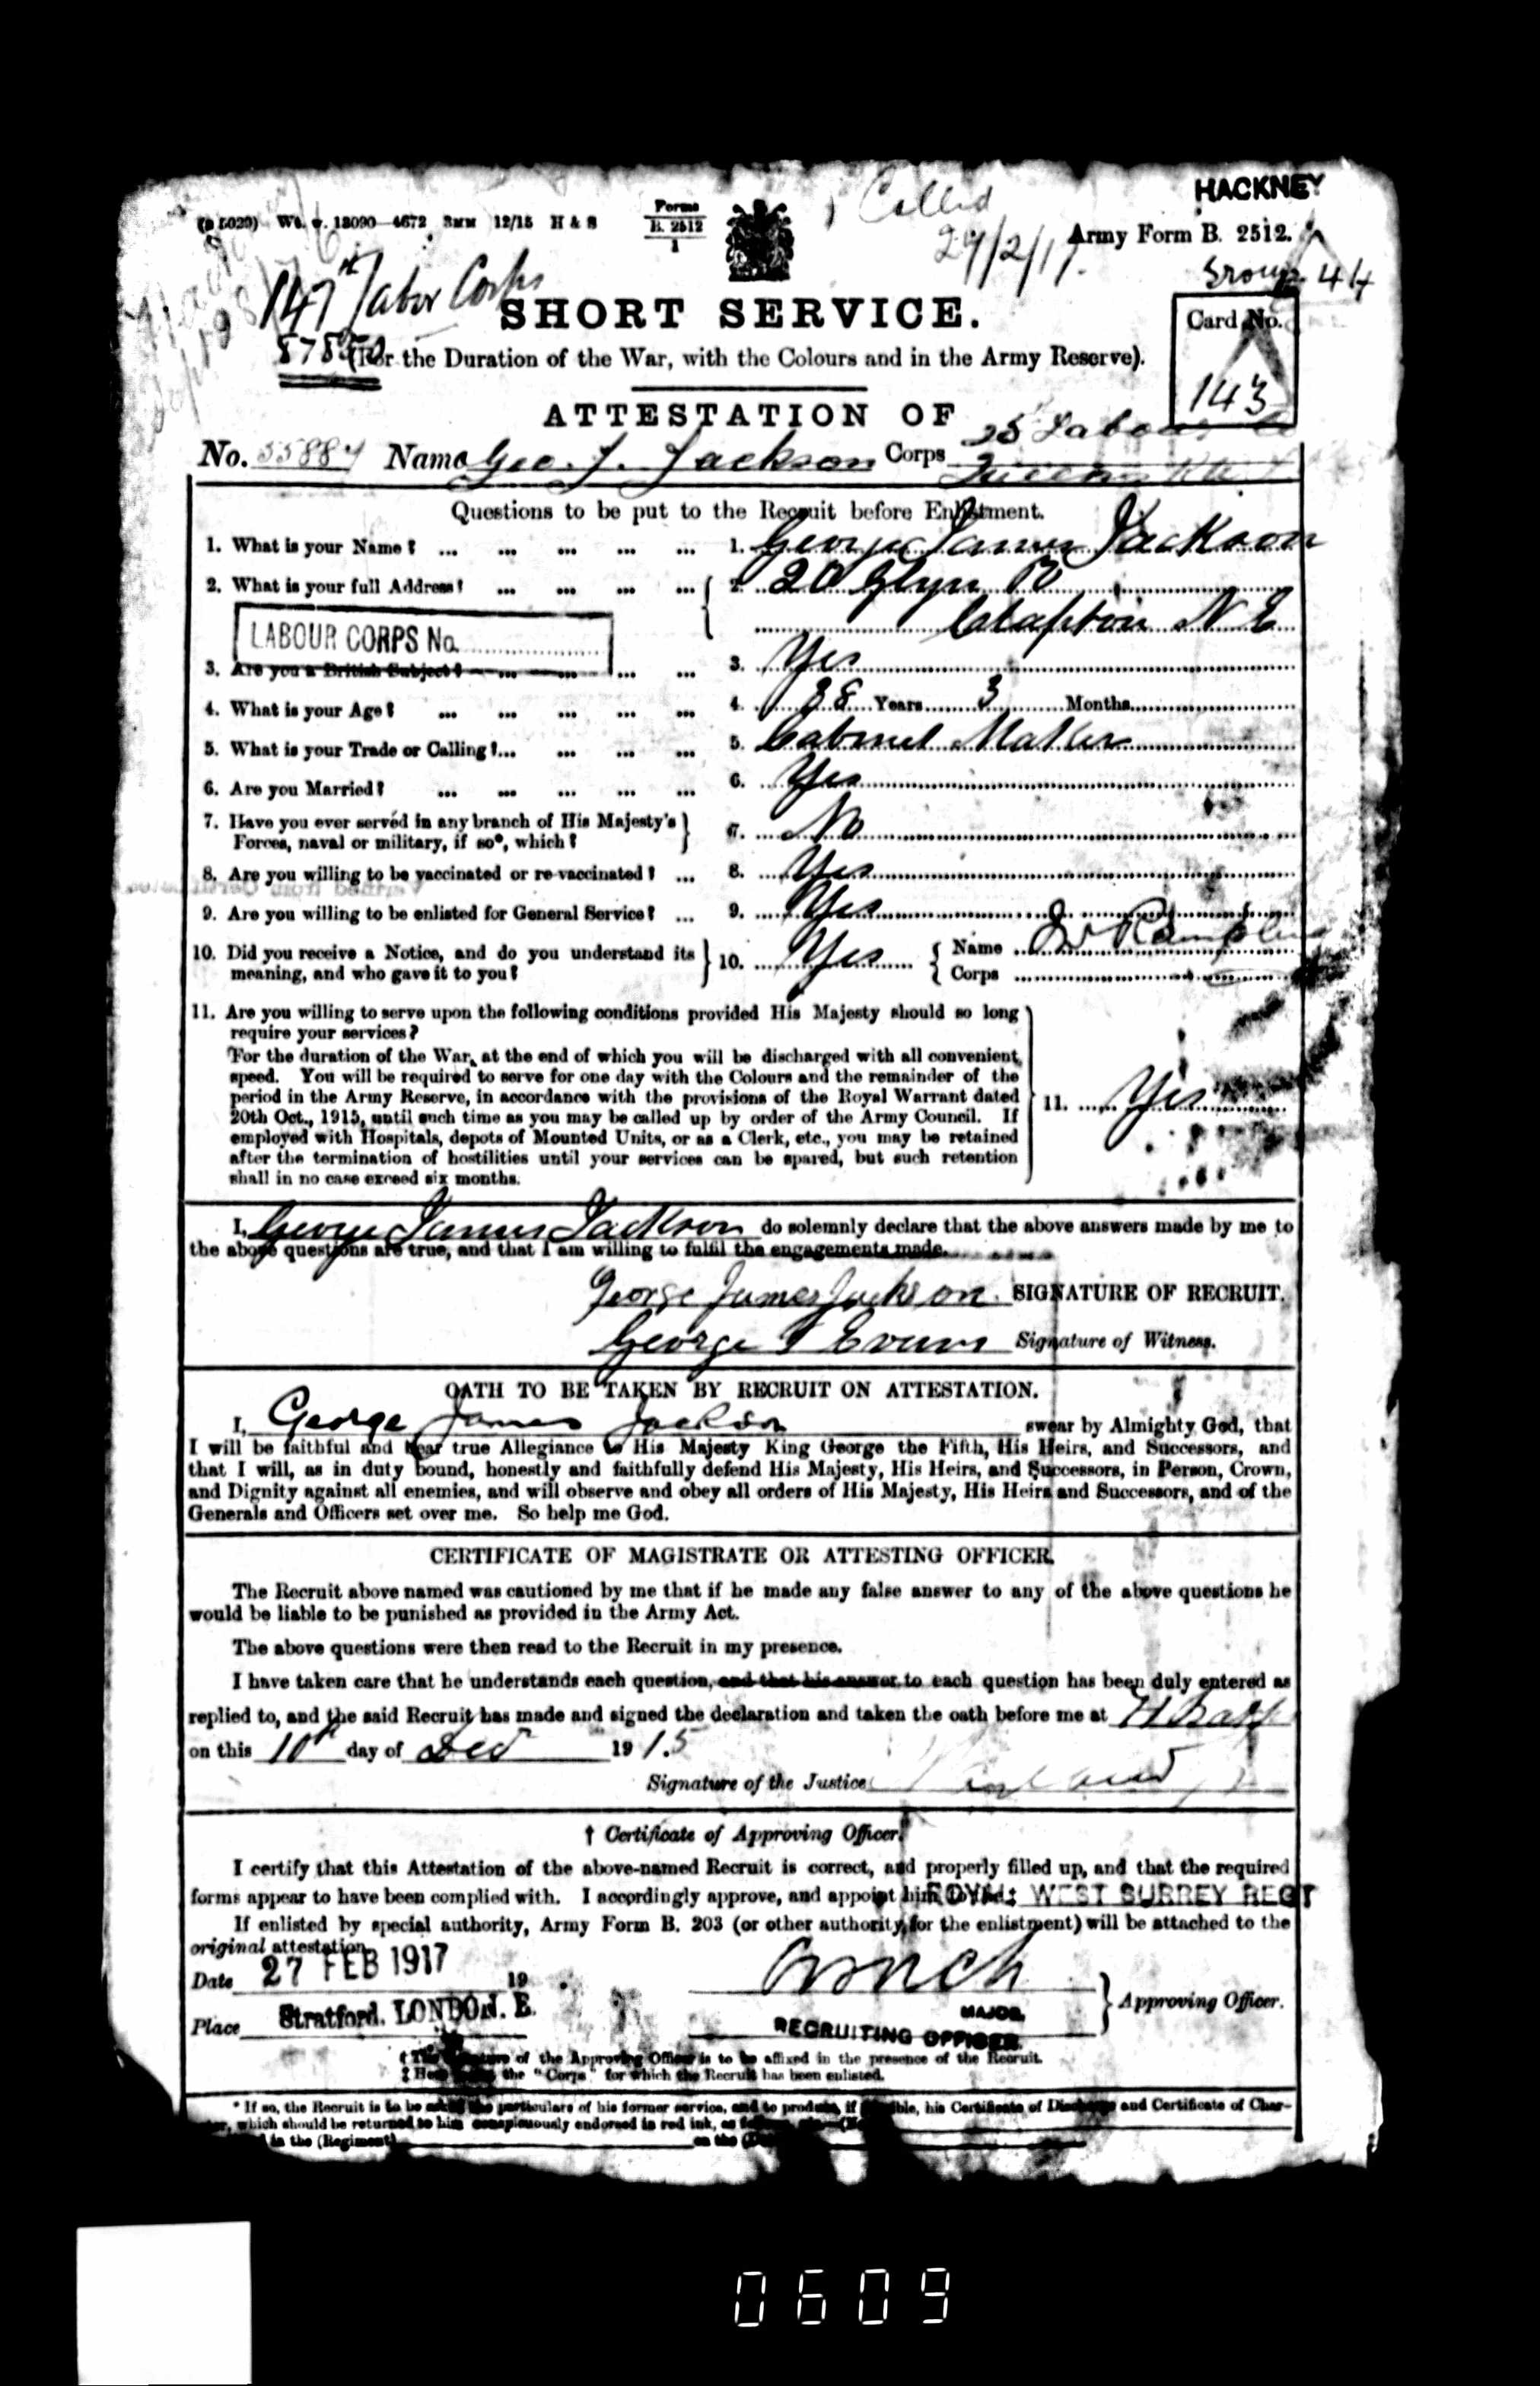 HACKNEY
Forms
B. 2512
1
Called
12/15 H & S
Army Form B. 2512.
27/2/17.
Group 44
147th Labor Corps
SHORT SERVICE.
Card No.
(For the Duration of the War, with the Colours and in the Army Reserve).
143
ATTESTATION OF
25 Labour
No. Name Geo. J. Jackson Corps Queens
Questions to be put to the Recruit before Enlistment.
1. What is your Name? ... ... ... ... ... 1. George James Jackson
2. What is your full Address? ... ... ... ... 2. 20 Glyn Rd
Clapton N E
LABOUR CORPS No.
3. Are you a British Subject? ... ... ... ... 3. Yes
4. What is your Age? ... ... ... ... ... 4. 38 Years 3 Months
5. What is your Trade or Calling?... ... ... ... 5. Cabinet Maker
6. Are you Married? ... ... ... ... ... 6. Yes
7. Have you ever served in any branch of His Majesty's
Forces, naval or military, if so*, which? 7. No
8. Are you willing to be vaccinated or re-vaccinated? ... 8. Yes
9. Are you willing to be enlisted for General Service? ... 9. Yes
10. Did you receive a Notice, and do you understand its
meaning, and who gave it to you? 10. Yes Name
Corps
11. Are you willing to serve upon the following conditions provided His Majesty should so long
require your services?
For the duration of the War, at the end of which you will be discharged with all convenient
speed. You will be required to serve for one day with the Colours and the remainder of the
period in the Army Reserve, in accordance with the provisions of the Royal Warrant dated
20th Oct., 1915, until such time as you may be called up by order of the Army Council. If
employed with Hospitals, depots of Mounted Units, or as a Clerk, etc., you may be retained
after the termination of hostilities until your services can be spared, but such retention
shall in no case exceed six months.
11. Yes
I, George James Jackson do solemnly declare that the above answers made by me to
the above questions are true, and that I am willing to fulfil the engagements made.
George James Jackson. SIGNATURE OF RECRUIT.
George Evans Signature of Witness.
OATH TO BE TAKEN BY RECRUIT ON ATTESTATION.
I, George James Jackson swear by Almighty God, that
I will be faithful and bear true Allegiance to His Majesty King George the Fifth, His Heirs, and Successors, and
that I will, as in duty bound, honestly and faithfully defend His Majesty, His Heirs, and Successors, in Person, Crown,
and Dignity against all enemies, and will observe and obey all orders of His Majesty, His Heirs and Successors, and of the
Generals and Officers set over me. So help me God.
CERTIFICATE OF MAGISTRATE OR ATTESTING OFFICER.
The Recruit above named was cautioned by me that if he made any false answer to any of the above questions he
would be liable to be punished as provided in the Army Act.
The above questions were then read to the Recruit in my presence.
I have taken care that he understands each question, and that his answer to each question has been duly entered as
replied to, and the said Recruit has made and signed the declaration and taken the oath before me at
on this 10th day of Dec 1915
Signature of the Justice
† Certificate of Approving Officer.
I certify that this Attestation of the above-named Recruit is correct, and properly filled up, and that the required
forms appear to have been complied with. I accordingly approve, and appoint him to the‡ ROYAL WEST SURREY REGT
If enlisted by special authority, Army Form B. 203 (or other authority for the enlistment) will be attached to the
original attestation.
Date 27 FEB 1917 19
Approving Officer.
Place Stratford. LONDON. E.
MAJOR
RECRUITING OFFICER.
† The Signature of the Approving Officer is to be affixed in the presence of the Recruit.
‡ Here the "Corps" for which the Recruit has been enlisted.
* If so, the Recruit is to be asked the particulars of his former service, and to produce, if possible, his Certificate of Discharge and Certificate of Char-
which should be returned to him conspicuously endorsed in red ink, as
in the (Regiment) on the
0609